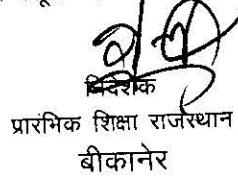 निदेशक
प्रारंभिक शिक्षा राजस्थान
बीकानेर